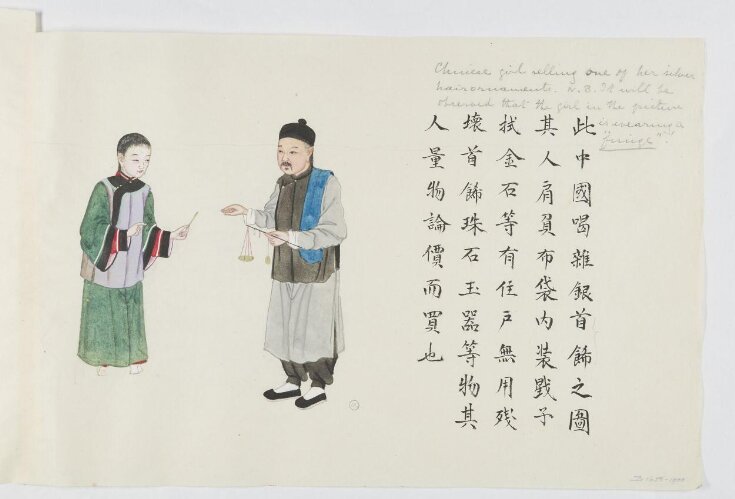 Chinese girl selling one of her silver
hairornaments. N.B. It will be
observed that the girl in the picture
is wearing a
"fringe".
此中國喝雜銀首飾之圖
其人肩負布袋內装戥子
拭金石等有住戶無用殘
壞首飾珠石玉器等物其
人量物論價而買也